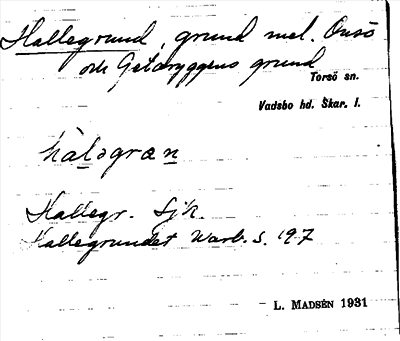 Hallegrund, grund mel. Onsö
och Getaryggens grund
Torsö sn.
Vadsbo hd. Skar. l.
hàləgræn
Hallegr. Sjk.
Hallegrundet Warb. s. 197
L. MADSÉN 1931